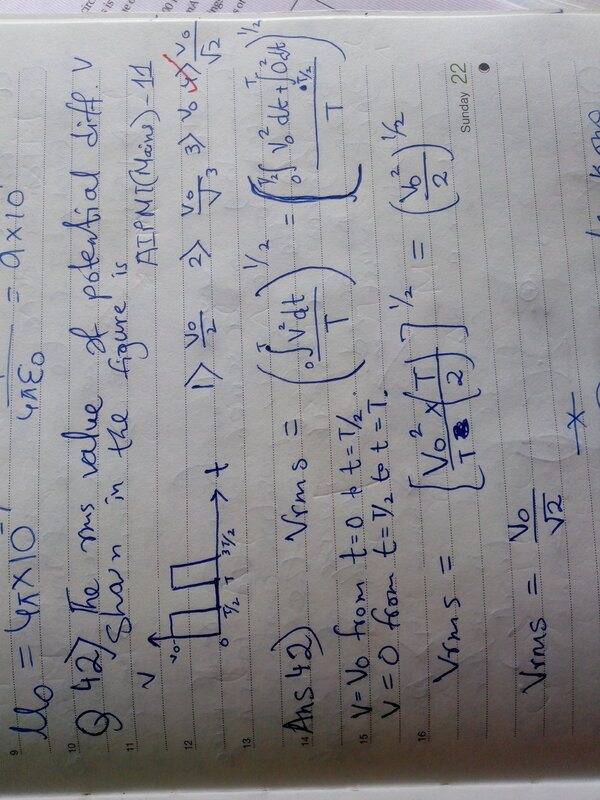 9
μ₀ = 4π×10⁻⁷
4πε₀
= 9×10
10
Q 42) The rms value of potential diff. V
shown in the figure is
AIPMT(Mains)-11
11
V
V₀
0 T/2 T 3T/2
t
12
1> V₀/2 2> V₀/√3 3> V₀ 4> V₀/√2
13
14
Ans 42) Vrms = (₀∫ᵀ V²dt / T)^1/2 = (₀∫^T/2 V₀²dt + T/2∫ᵀ 0dt / T)^1/2
15
V=V₀ from t=0 to t=T/2.
V=0 from t=T/2 to t=T.
16
Vrms = [V₀²/T × (T/2)]^1/2 = (V₀²/2)^1/2
Vrms = V₀/√2
x
Sunday 22